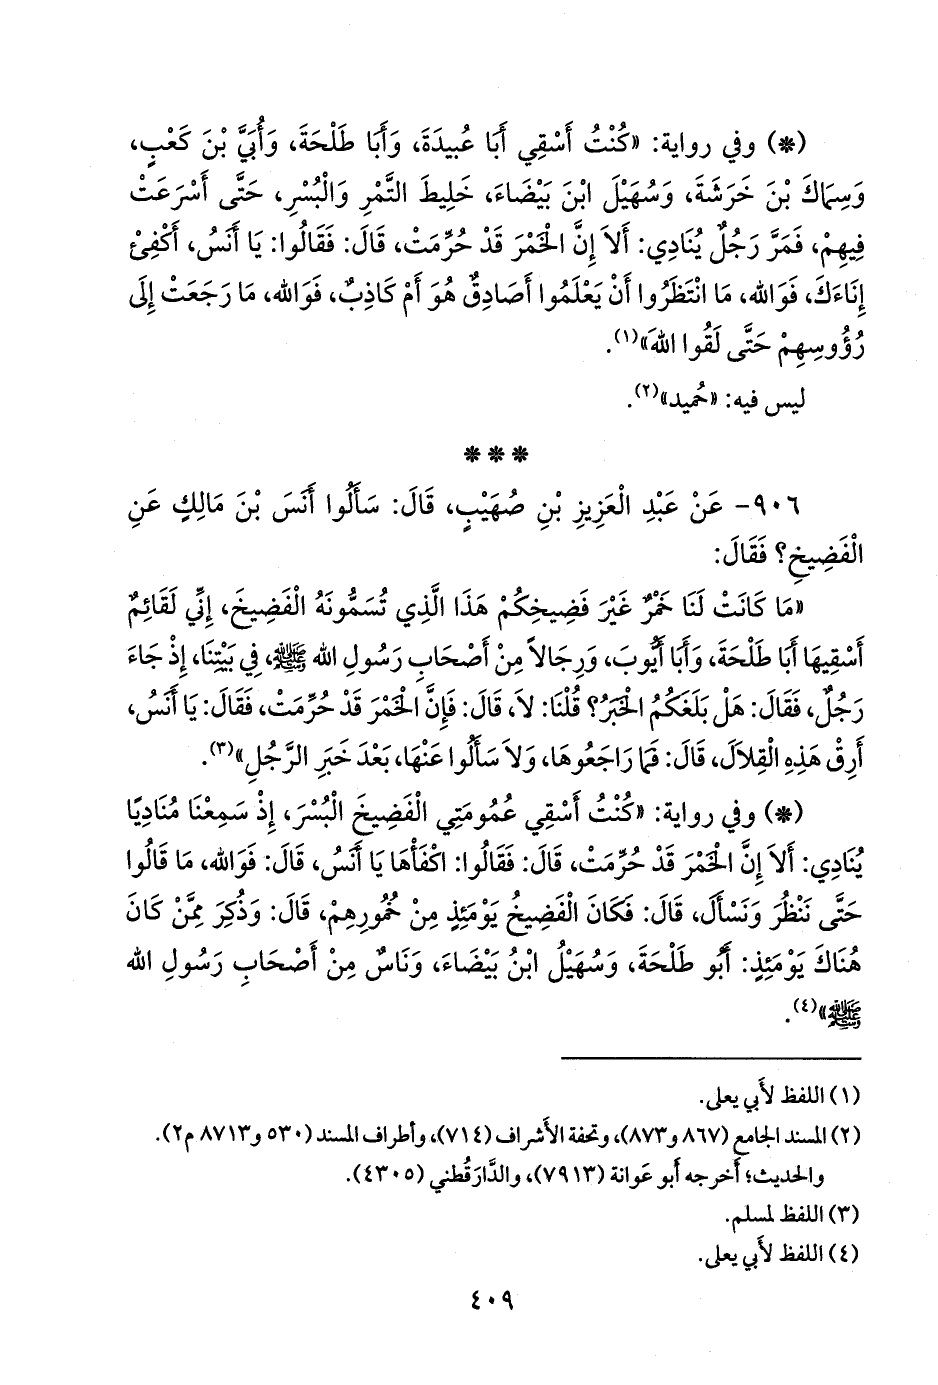 (*) وفي رواية: «كُنْتُ أَسْقِي أَبَا عُبيدَةَ، وَأَبَا طَلْحَةَ، وَأُبَيَّ بْنَ كَعْبٍ،
وَسِمَاكَ بْنَ خَرَشَةَ، وَسُهَيْلَ ابْنَ بَيْضَاءَ، خَلِيطَ التَّمْرِ وَالْبُسْرِ، حَتَّى أَسْرَعَتْ
فِيهِمْ، فَمَرَّ رَجُلٌ يُنَادِي: أَلاَ إِنَّ الْخَمْرَ قَدْ حُرِّمَتْ، قَالَ: فَقَالُوا: يَا أَنَسُ، أَكْفِئْ
إِنَاءَكَ، فَوَالله، مَا انْتَظَرُوا أَنْ يَعْلَمُوا أَصَادِقٌ هُوَ أَمْ كَاذِبٌ، فَوَالله، مَا رَجَعَتْ إِلَى
رُؤُوسِهِمْ حَتَّى لَقُوا اللهَ»(١).
ليس فيه: «حُميد»(٢).
* * *
٩٠٦- عَنْ عَبْدِ الْعَزِيزِ بْنِ صُهَيْبٍ، قَالَ: سَأَلُوا أَنَسَ بْنَ مَالِكٍ عَنِ
الْفَضِيخِ؟ فَقَالَ:
«مَا كَانَتْ لَنَا خَمْرٌ غَيْرَ فَضِيخِكُمْ هَذَا الَّذِي تُسَمُّونَهُ الْفَضِيخَ، إِنِّي لَقَائِمٌ
أَسْقِيهَا أَبَا طَلْحَةَ، وَأَبَا أَيُّوبَ، وَرِجَالاً مِنْ أَصْحَابِ رَسُولِ الله ﷺ، فِي بَيْتِنَا، إِذْ جَاءَ
رَجُلٌ، فَقَالَ: هَلْ بَلَغَكُمُ الْخَبَرُ؟ قُلْنَا: لاَ، قَالَ: فَإِنَّ الْخَمْرَ قَدْ حُرِّمَتْ، فَقَالَ: يَا أَنَسُ،
أَرِقْ هَذِهِ الْقِلاَلَ، قَالَ: فَمَا رَاجَعُوهَا، وَلاَ سَأَلُوا عَنْهَا، بَعْدَ خَبَرِ الرَّجُلِ»(٣).
(*) وفي رواية: «كُنْتُ أَسْقِي عُمُومَتِي الْفَضِيخَ الْبُسْرَ، إِذْ سَمِعْنَا مُنَادِيًا
يُنَادِي: أَلاَ إِنَّ الْخَمْرَ قَدْ حُرِّمَتْ، قَالَ: فَقَالُوا: اكْفَأْهَا يَا أَنَسُ، قَالَ: فَوَالله، مَا قَالُوا
حَتَّى نَنْظُرَ وَنَسْأَلَ، قَالَ: فَكَانَ الْفَضِيخُ يَوْمَئِذٍ مِنْ خُمُورِهِمْ، قَالَ: وَذُكِرَ مِمَّنْ كَانَ
هُنَاكَ يَوْمَئِذٍ: أَبُو طَلْحَةَ، وَسُهَيْلُ ابْنُ بَيْضَاءَ، وَنَاسٌ مِنْ أَصْحَابِ رَسُولِ الله
ﷺ»(٤).
(١) اللفظ لأَبي يعلى.
(٢) المسند الجامع (٨٦٧ و٨٧٣)، وتحفة الأشراف (٧١٤)، وأطراف المسند (٥٣٠ و٨٧١٣ م٢).
والحديث؛ أخرجه أبو عَوانة (٧٩١٣)، والدَّارَقُطني (٤٣٠٥).
(٣) اللفظ لمسلم.
(٤) اللفظ لأَبي يعلى.
٤٠٩